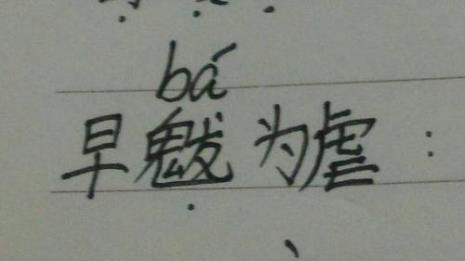 bá
早魃为虐：